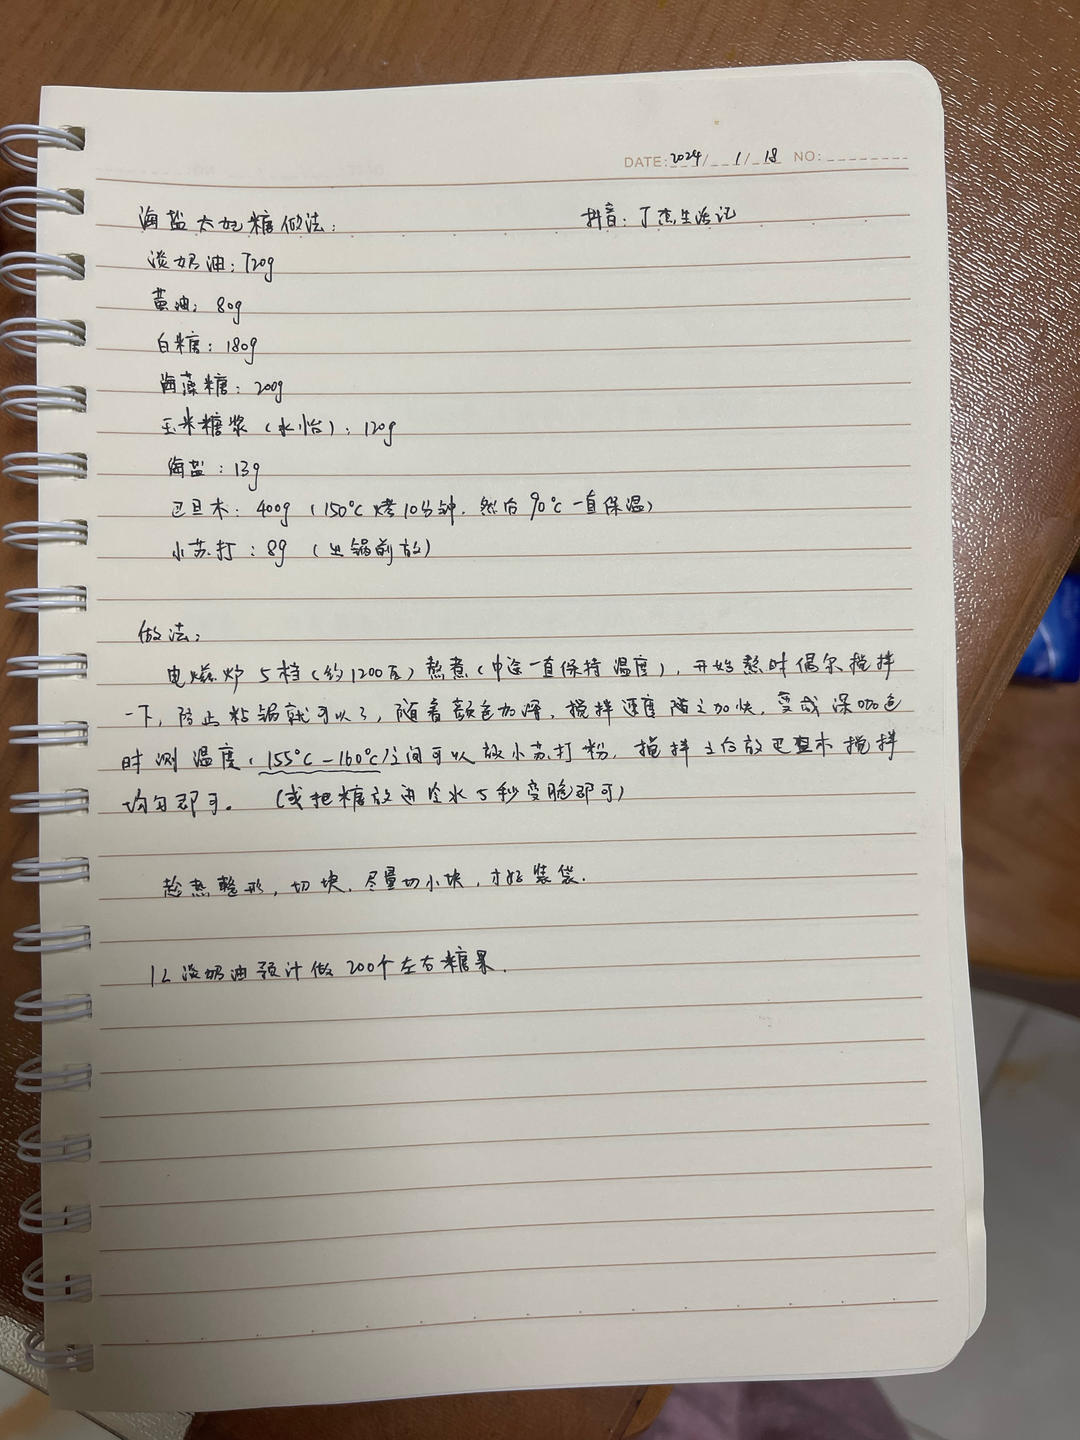 DATE: 2024/ 1/ 18 NO:
海盐太妃糖做法: 抖音: 丁杰生活记
淡奶油: 720g
黄油: 80g
白糖: 180g
海藻糖: 200g
玉米糖浆(水怡): 120g
海盐: 13g
巴旦木: 400g (150℃烤10分钟, 然后90℃一直保温)
小苏打: 8g (出锅前放)
做法:
电磁炉5档(约1200瓦)熬煮(中途一直保持温度), 开始熬时偶尔搅拌
一下, 防止粘锅就可以了, 随着颜色加深, 搅拌速度随之加快, 变成深咖色
时测温度, 155℃-160℃之间可以放小苏打粉, 搅拌之后放巴旦木搅拌
均匀即可。 (或把糖放进冷水5秒变脆即可)
趁热整形, 切块, 尽量切小块, 才好装袋.
1L淡奶油预计做200个左右糖果.